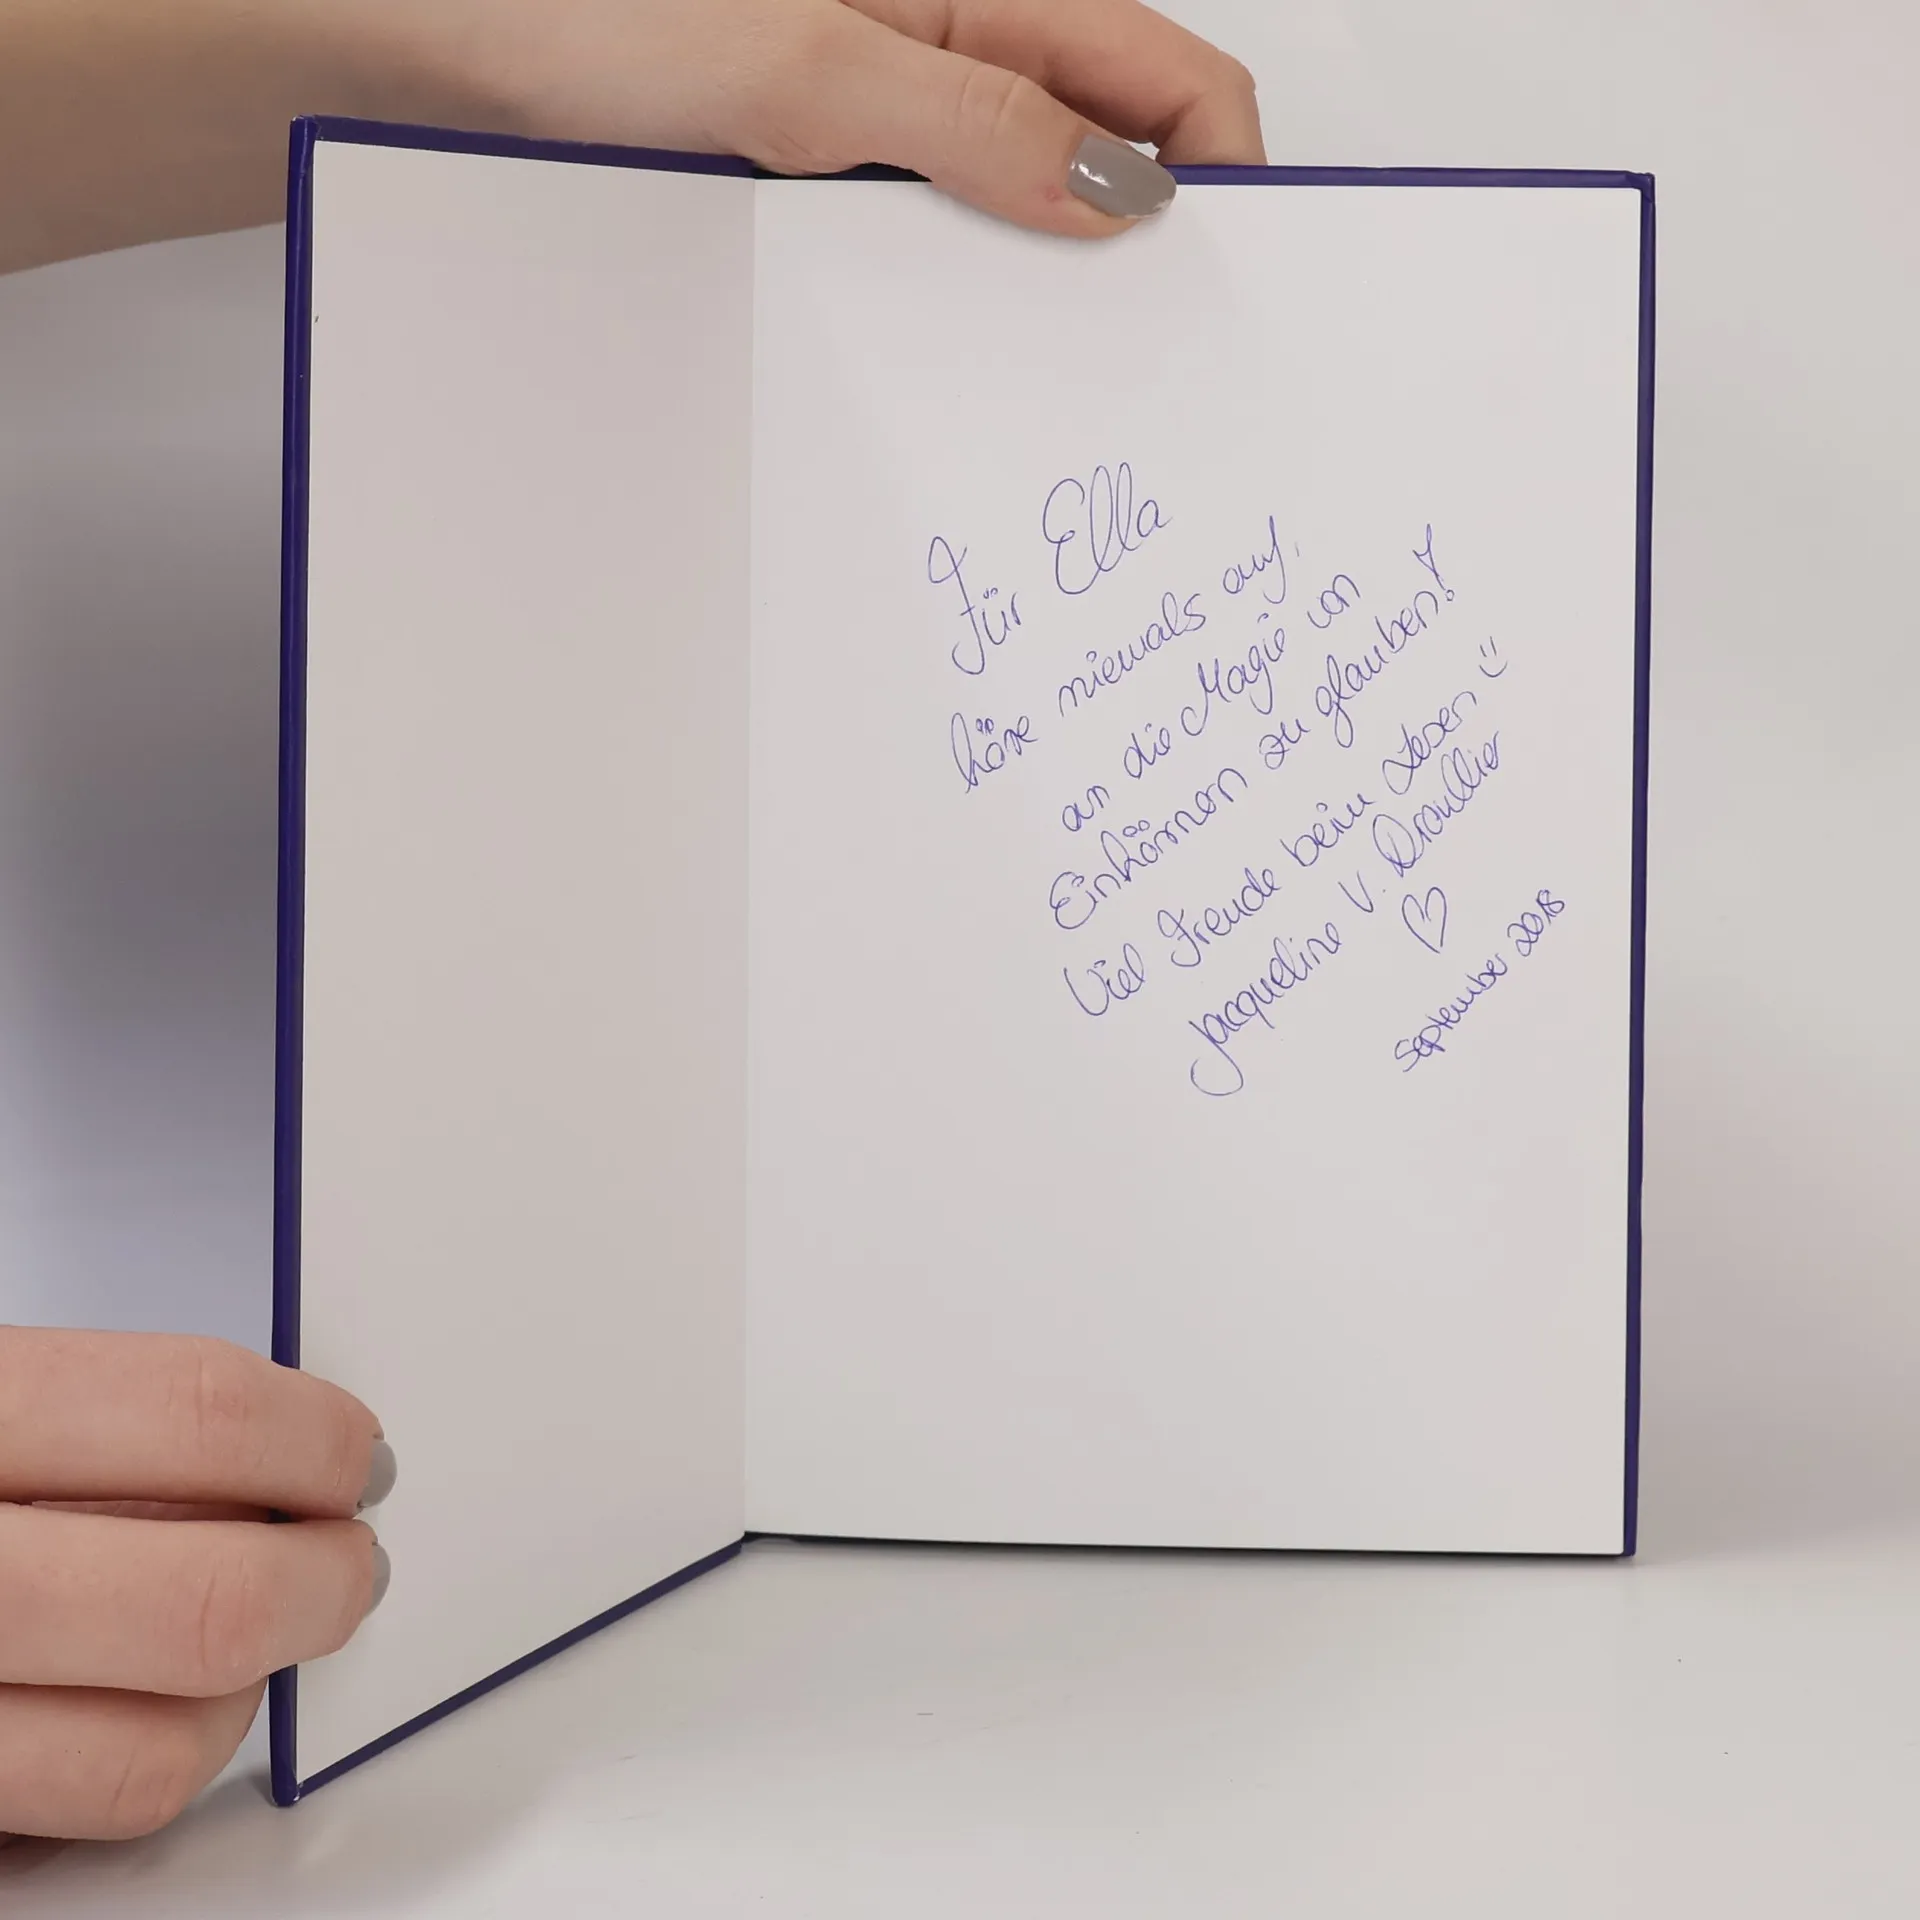 Für Ella
höre niemals auf,
an die Magie von
Einhörnern zu glauben!
Viel Freude beim Lesen :)
Jacqueline V. Droullier
♡
September 2018